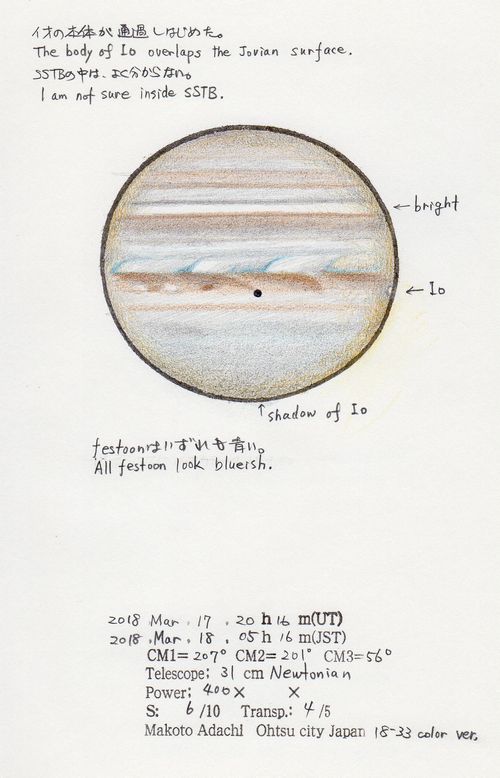 イオの本体が通過しはじめた。
The body of Io overlaps the Jovian surface.
SSTBの中は、よく分からない。
I am not sure inside SSTB.
← bright
← Io
↑ shadow of Io
festoonはいずれも青い。
All festoon look blueish.
2018 Mar. 17 . 20 h 16 m(UT)
2018 .Mar. 18 . 05 h 16 m(JST)
CM1= 207° CM2= 201° CM3= 56°
Telescope: 31 cm Newtonian
Power: 400 × ×
S: 6 /10 Transp.: 4 /5
Makoto Adachi Ohtsu city Japan 18-33 color ver.